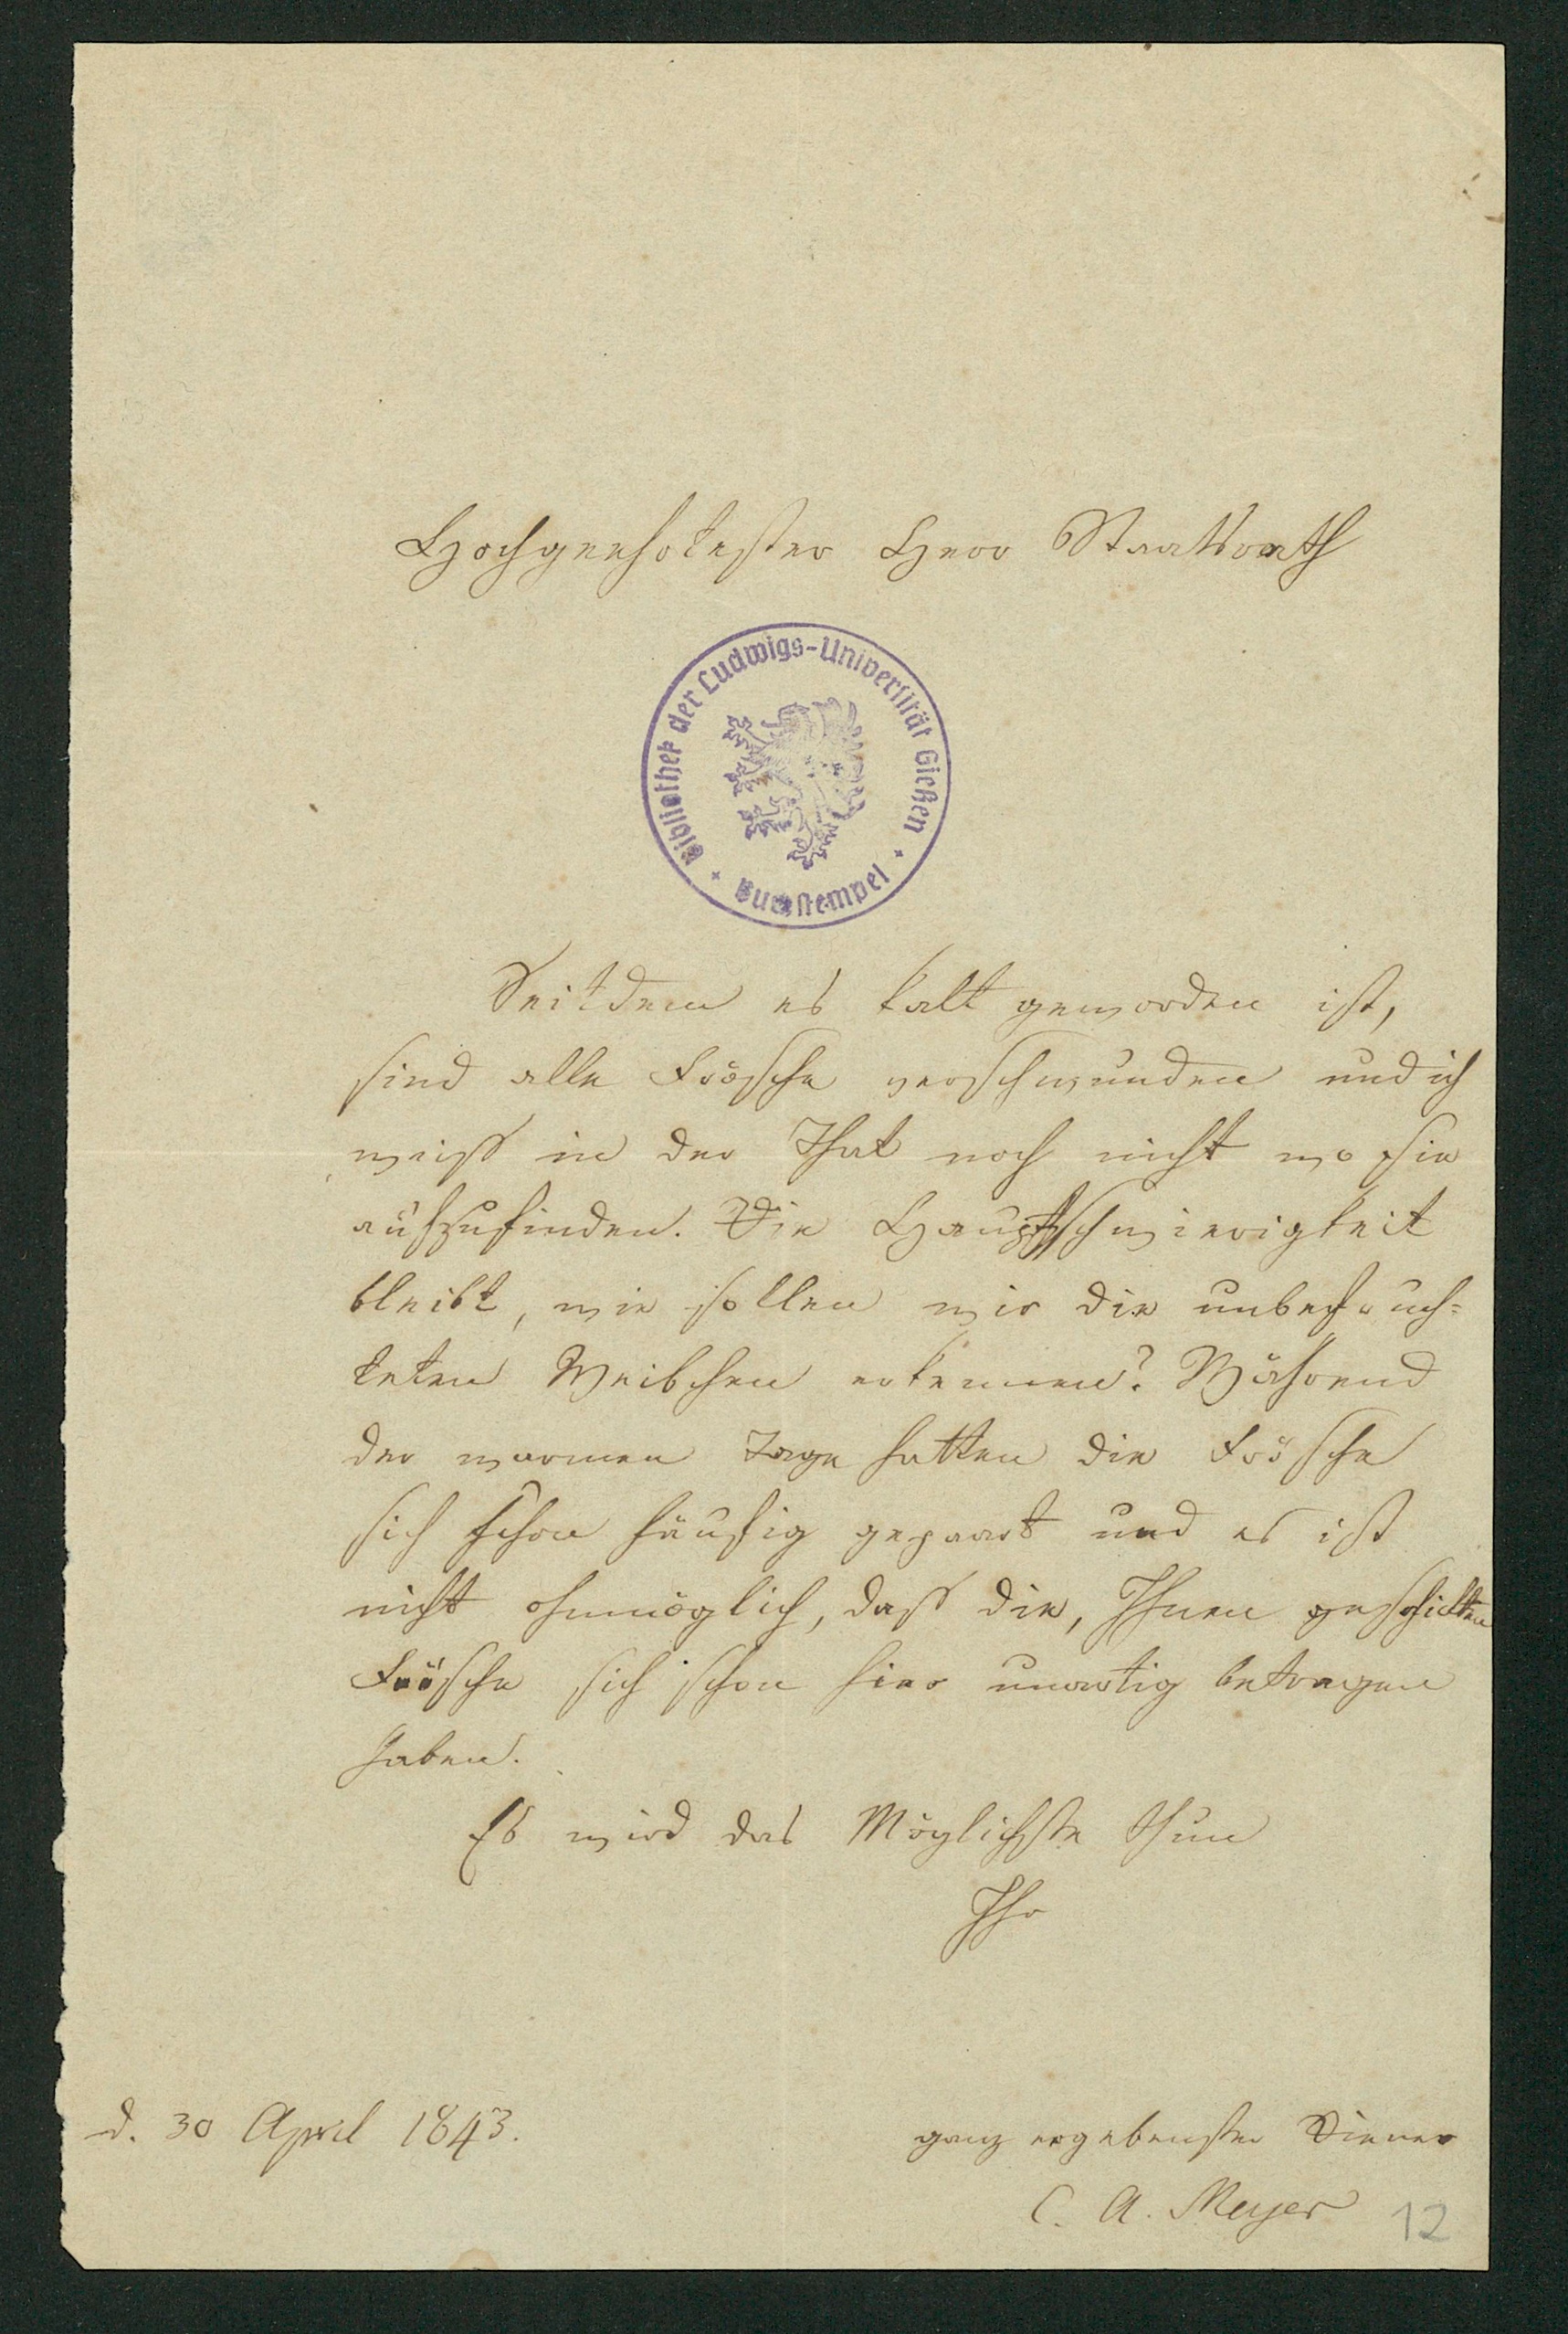 Hochgeehrtester Herr Staatsrath
Bibliothek der Ludwigs-Universität Gießen
Buchstempel
Seitdem es kalt geworden ist,
sind alle Frösche verschwunden und ich
weiß in der That noch nicht wo sie
aufzufinden. Die Hauptschwierigkeit
bleibt, wie sollen wir die unbefruch=
teten Weibchen erkennen? Während
der warmen Tage hatten die Frösche
sich schon häufig gepaart und es ist
nicht ohnmöglich, daß die, Ihnen geschickten
Frösche sich schon hier unartig betragen
haben.
Es wird das Möglichste thun
Ihr
d. 30 April 1843.
ganz ergebenster Diener
C. A. Meyer
12